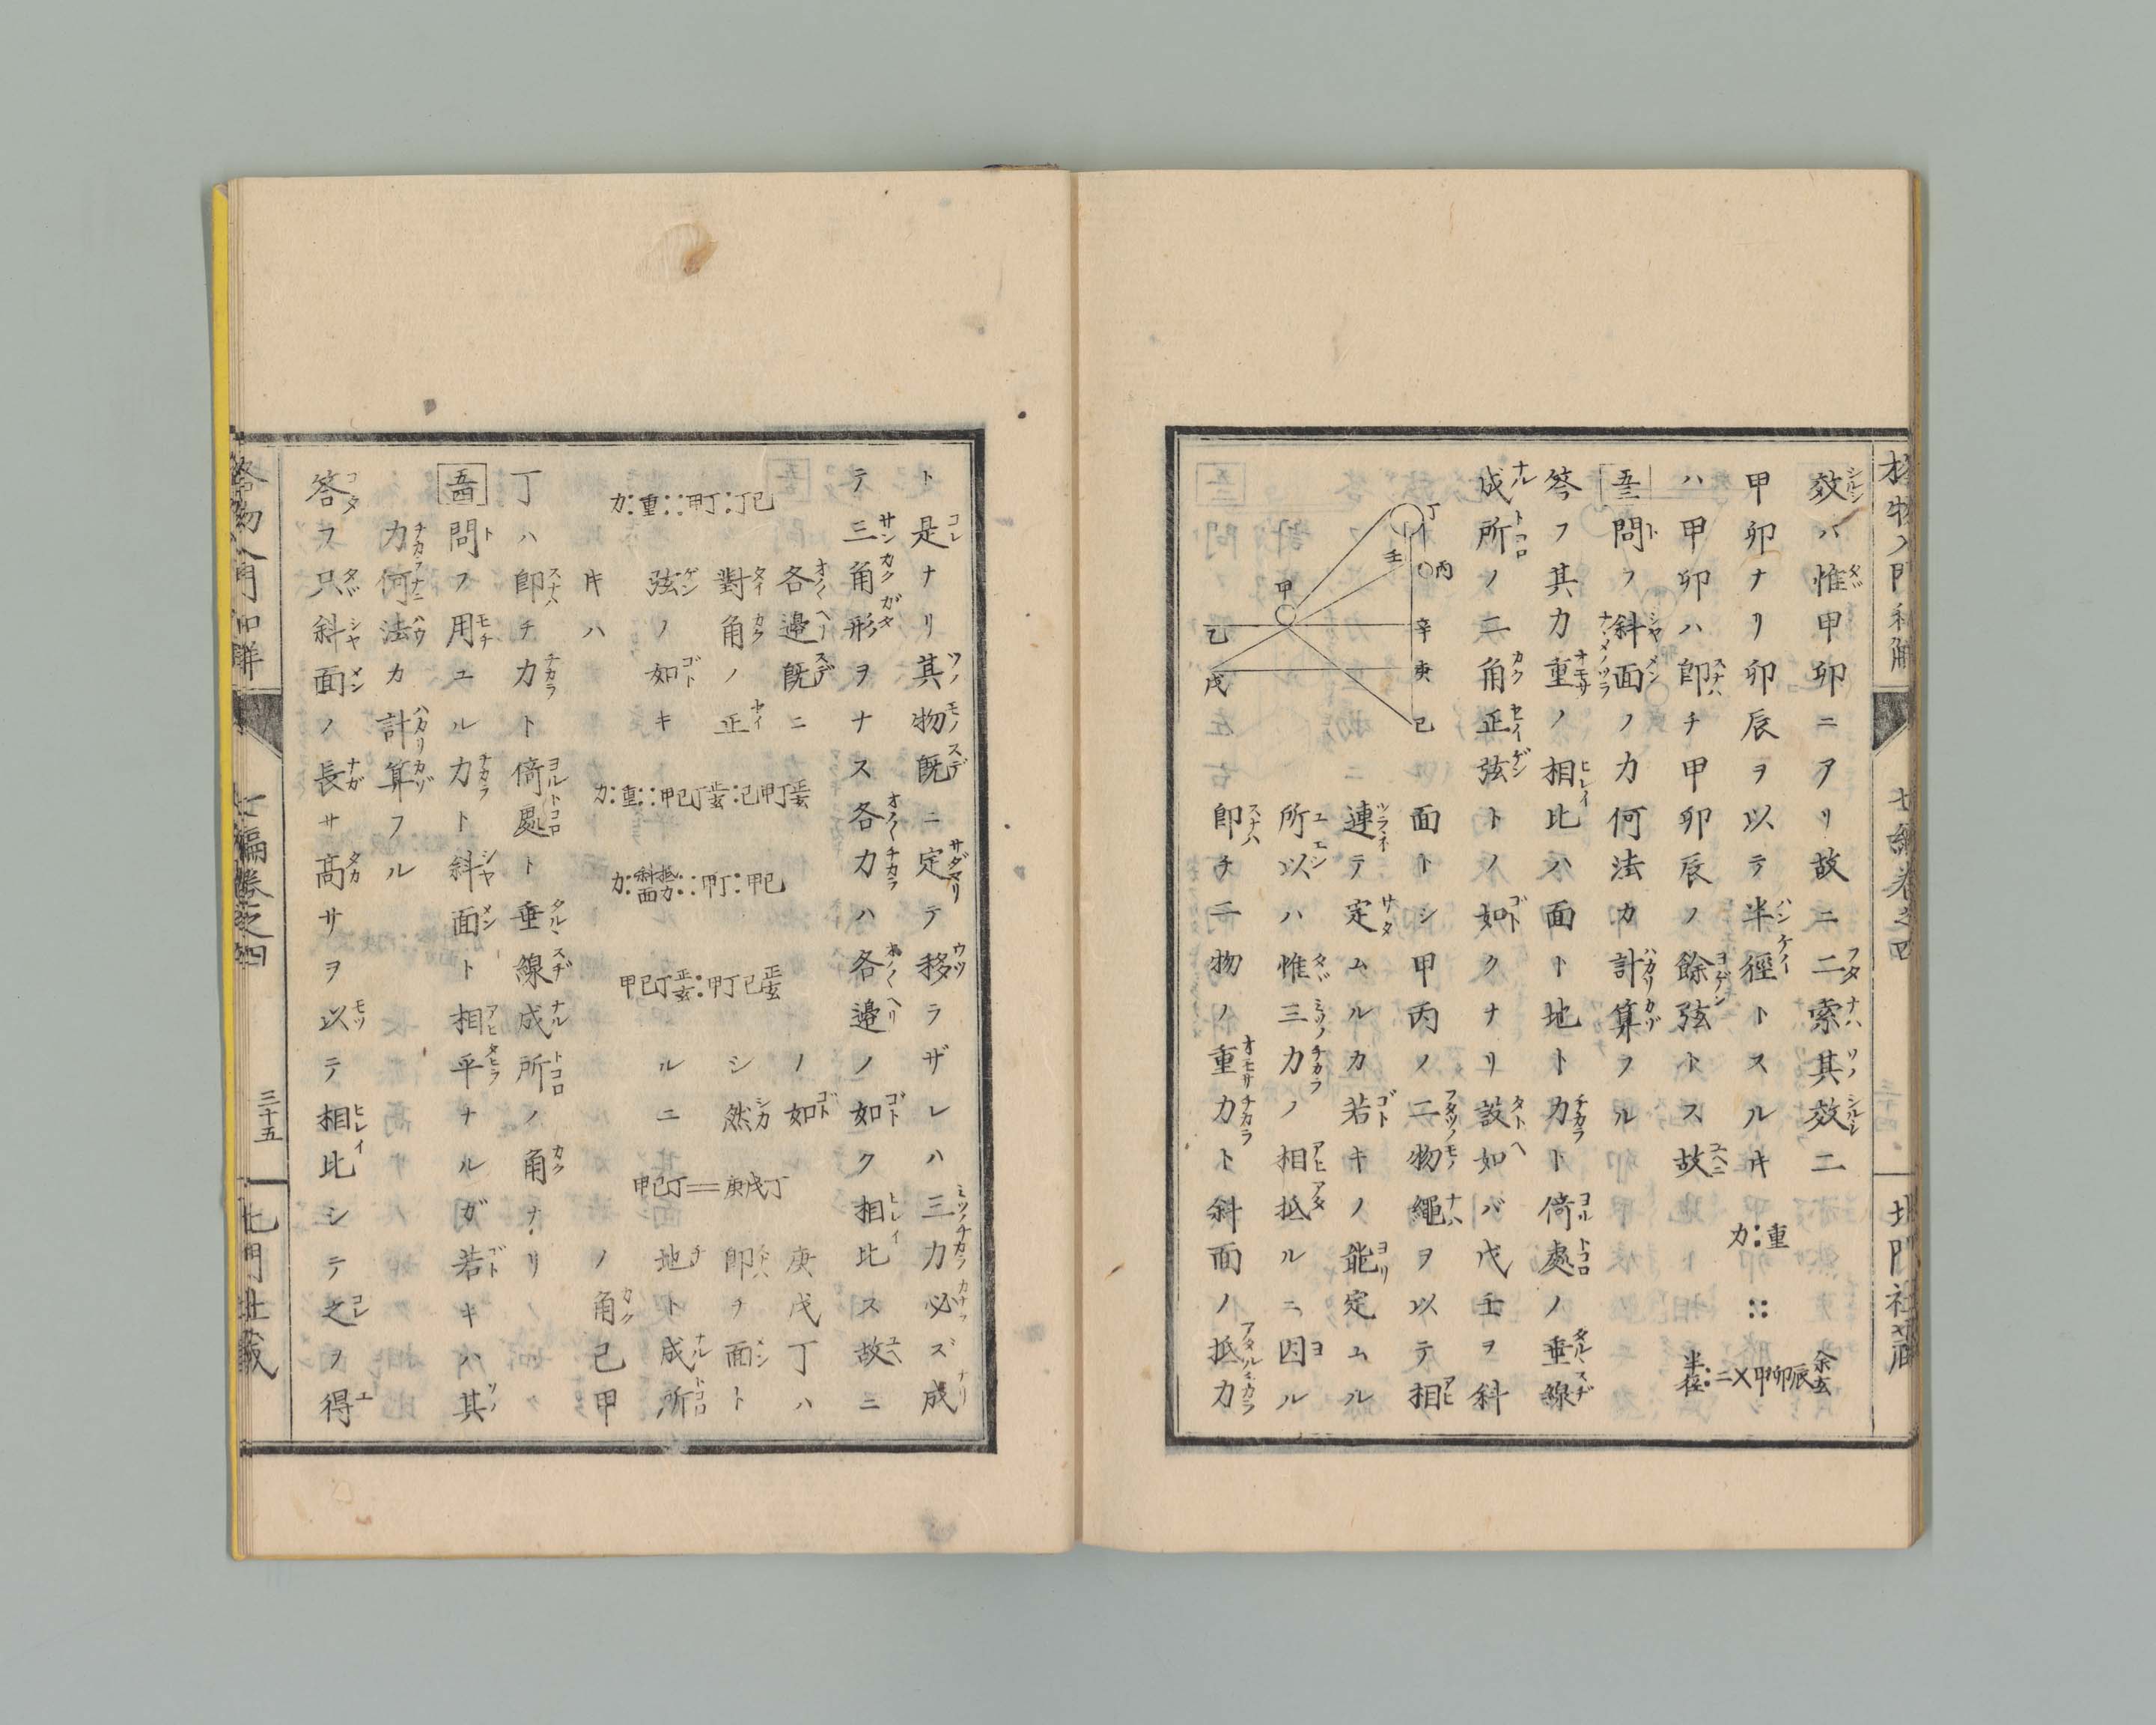 格物入門和解
七編卷之四
北門社藏
效ハ惟甲卯ニアリ故ニ二索其效二
甲卯ナリ卯辰ヲ以テ半徑トスルキ
力:重::半径:二×甲卯辰余玄
ハ甲卯ハ卽チ甲卯辰ノ餘弦トス故
五三 問フ斜面ノ力何法カ計算フル
答フ其力重ノ相比ハ面ト地ト力ト倚處ノ垂線
成所ノ二角正弦トノ如クナリ設如バ戊壬ヲ斜
丁
丙
壬
甲
辛
乙
庚
戊
己
面トシ甲丙ノ二物繩ヲ以テ相
連テ定ムルカ若キノ能定ムル
所以ハ惟三力ノ相抵ルニ因ル
卽チ二物ノ重力ト斜面ノ抵力
ト是ナリ其物既ニ定テ移ラザレハ三力必ズ成
テ三角形ヲナス各力ハ各邉ノ如ク相比ス故ニ
各邉既ニ
ノ如
庚戊丁ハ
對角ノ正
シ然
卽チ面ト
弦ノ如キ
ルニ
地ト成所
力:重::甲丁:丁己
力:重::甲己丁正玄:己甲丁正玄
力:斜面抵力::甲丁:甲己
甲己丁正玄:甲丁己正玄
甲己丁=庚戊丁
キハ
ノ角己甲
丁ハ卽チ力ト倚處ト垂線成所ノ角ナリ
五四 問フ用ユル力ト斜面ト相平ナルガ若キハ其
力何法カ計算フル
答フ只斜面ノ長サ高サヲ以テ相比シテ之ヲ得
格物入門和解
七編卷之四
三十五
北門社藏